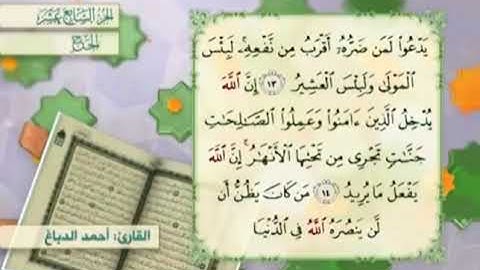 الجزء السابع عشر
الحج
يَدْعُوا۟ لَمَن ضَرُّهُۥٓ أَقْرَبُ مِن نَّفْعِهِۦ ۚ لَبِئْسَ
ٱلْمَوْلَىٰ وَلَبِئْسَ ٱلْعَشِيرُ ١٣ إِنَّ ٱللَّهَ
يُدْخِلُ ٱلَّذِينَ ءَامَنُوا۟ وَعَمِلُوا۟ ٱلصَّـٰلِحَـٰتِ
جَنَّـٰتٍ تَجْرِى مِن تَحْتِهَا ٱلْأَنْهَـٰرُ ۚ إِنَّ ٱللَّهَ
يَفْعَلُ مَا يُرِيدُ ١٤ مَن كَانَ يَظُنُّ أَن
لَّن يَنصُرَهُ ٱللَّهُ فِى ٱلدُّنْيَا
القارئ: أحمد الدباغ